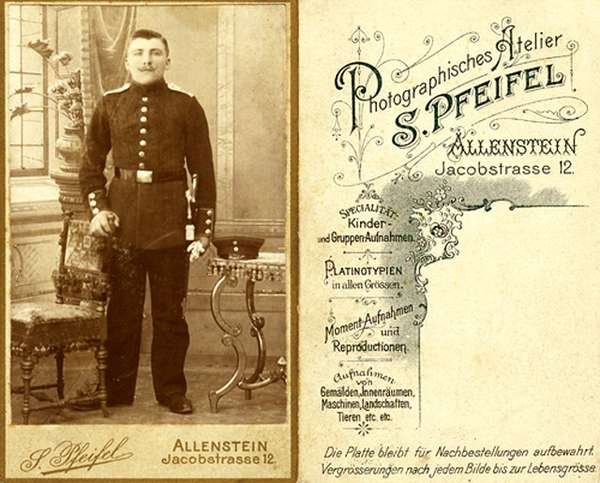 S. Pfeifel
ALLENSTEIN
Jacobstrasse 12.
Photographisches Atelier
S. PFEIFEL
ALLENSTEIN
Jacobstrasse 12.
SPECIALITÄT:
Kinder-
und Gruppen-Aufnahmen.
PLATINOTYPIEN
in allen Grössen.
Moment-Aufnahmen
und
Reproductionen.
Aufnahmen
von
Gemälden, Innenräumen,
Maschinen, Landschaften,
Tieren etc. etc.
Die Platte bleibt für Nachbestellungen aufbewahrt.
Vergrösserungen nach jedem Bilde bis zur Lebensgrösse.